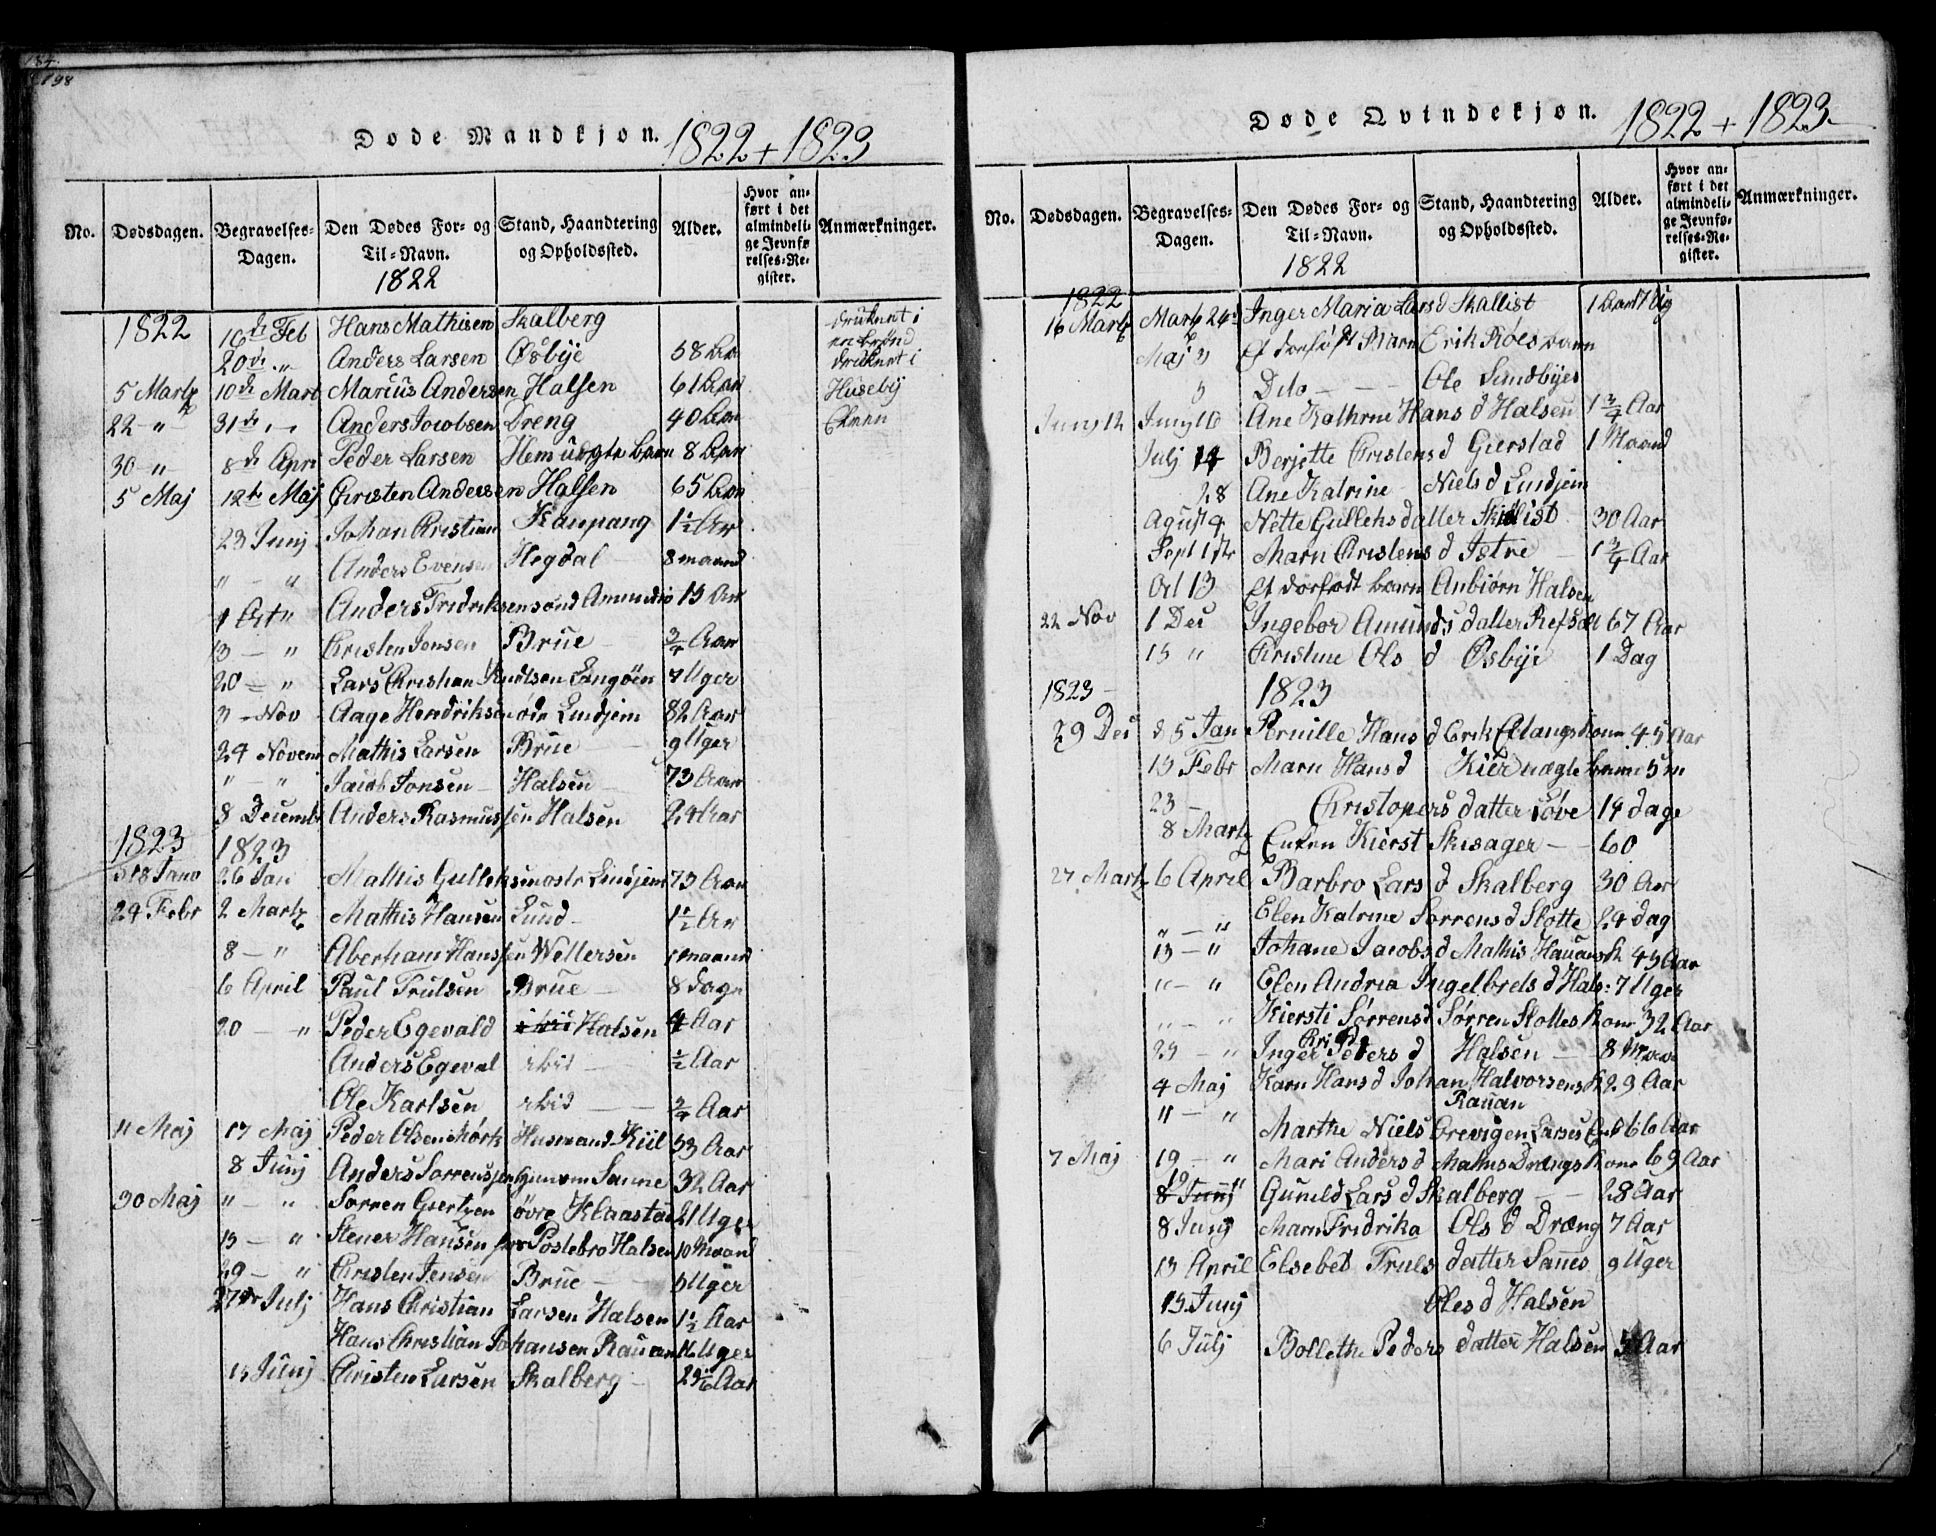 198
Døde Mandkjøn. 1822 + 1823
No. Dødsdagen. Begravelses-Dagen. Den Dødes For- og Til-Navn. Stand, Haandtering og Opholdssted. Alder. Hvor anført i det almindelige Jevnførelses-Register. Anmærkninger.
1822
1822 16 de Feb Hans Mathisen Skalberg druknet i en brønd
20 de " Anders Larsen Østbye 58 Aar druknet i
5 Martz 10 de Mart Marius Andersen Halsen 61 Aar Huseby
22 - " - 31 de " Anders Jacobsen Dreng 40 Aar Elven
30 - " 8 de Apri Peder Larsen Hem uegte barn 8 Aar
5 Maj 12te Maj Christen Andersen Halsen 65 Aar
23 Junj Johan Christian Kaupang 1½ Aar
" - " Anders Evensen Hegdal 8 maand
1 Oct " Anders Fridriksen 13 Aar
13 - " Cristen Jensen Brue ¾ Aar
20 - " Lars Christian Knudsen Langöen 7 Uger
3 - Nov Aage Hendriksen Lindjem 82 Aar
24 Novem Mathis Larsen Brue 9 Uger
" - " Jacob Jonsen Halsen 73 Aar
8 Decemb Anders Rasmussen Halsen 24 Aar
1823 1823
18 Janv 26 Jan Mathis Gulleksen Lindjem 73 Aar
24 Febr 2 Martz Mathis Hansen Lund 1½ Aar
8 - " Aberham Hanssen Wellersen 1 maand
6 April Paul Trulsen Brue 8 dage
20 - " Peder Egevald Halsen 4 Aar
Anders Egeval ½ Aar
Ole Karlsen ¾ Aar
11 Maj 17 Maj Peder Olsen Mørk Husmand Kiil 53 Aar
8 Junj Anders Sørrenssen Sanne 32 Aar
30 Maj " " Sørren Giertsen øvre Klaastad 21 Uger
13 - " Stener Hansen Postebro Halsen 10 Maand
29 - " Cristen Jensen Brue 6 Uger
27de Julj Hans Christian Larsen Halsen 1½ Aar
Hans Christian Johansen Rauan 16 Uger
15 Junj Cristen Larsen Skalberg
Døde Qvindekjøn. 1822 + 1823
No. Dødsdagen. Begravelses-Dagen. Den Dødes For- og Til-Navn. Stand, Haandtering og Opholdssted. Alder. Hvor anført i det almindelige Jevnførelses-Register. Anmærkninger.
1822
1822
16 Martz Martz 24 Inger Maria Lars d Skallist 1 Aar
Maj Et dørfødt Barn Erik Røes barn
Dito - - - Ole Sundbyes
Junj 12 Junj 16 Ane Kathrine Hans d Halsen 1¾ Aar
Julj 14 Berjette Cristens d Gierstad 1 Maand
28 Ane Katrine Niels d Lindjem
Agust 4 Nette Gulleks datter Skallist 30 Aar
Sept 1ste Marn Cristens d Istre 1¾ Aar
Oct 13 Et dørfødt barn Anbiørn Halsen
22 Nov 1 Dec Ingebor Amunds datter Refsal 67 Aar
15 " Cristine Ols d Østbye 1 Dag
1823 1823
29 Dec d 5 Jan Pernille Hans d Erik Elangs Kone 45 Aar
15 Febr Marn Hans d Kier uægte barn 5 m
23 - Christopers datter Løve 14 dage
8 Martz Enken Kierst Skisager - 60
27 Martz 6 April Barbro Lars d Skalberg 30 Aar
" - " Elen Katrine Sørrens d Slotte 24 dag
13 - " Johane Jacobs d Mathis Hauans K 43 Aar
" - " Elen Andria Ingelbrets d Hals: 7 Uger
" - " Kiersti Sørrens d Sørren Slottes Kone 32 Aar
29 - " Inger Peders d Halsen - 8 Maan
4 Maj Karn Hans d Johan Halvorsens K 29 Aar
Rauan
" - " Marthe Niels Grevigen Larses Enk 66 Aar
7 Maj 19 - " Mari Anders d Mathis Drængs Kone 69 Aar
8 Junj 19 " Gunild Lars d Skalberg - 28 Aar
8 Junj Marn Fridrika Ols d Dræng 7 Aar
13 April Elsebet Truls datter Sannes 9 Uger
15 Junj Oles d Halsen
6 Julj Bollethe Peders datter Halsen Aar